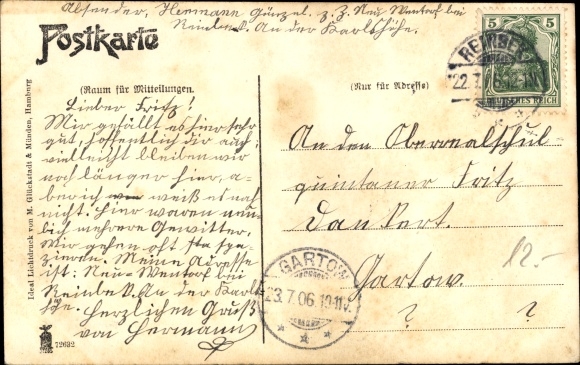 Absender, Hermann Günzel. z. Z. Neu Wentorf bei
Reinbek. An der Karlshöhe.
Postkarte
(Raum für Mitteilungen.
(Nur für Adresse)
Lieber Fritz!
Mir gefällt es hier sehr
gut, hoffentlich dir auch;
vielleicht bleiben wir
noch länger hier, a-
ber ich weiß es noch
nicht. Hier waren neu-
lich mehrere Gewitter.
Wir gehen oft spa-
zieren. Meine Adresse
ist: Neu-Wentorf bei
Reinbek. An der Karls-
höhe. Herzlichen Gruß
von Hermann
An den Oberrealschul-
quintaner Fritz
Dankert.
Gartow.
? ?
12.-
5 5
DEUTSCHES REICH
REINBEK
22.7.06
GARTOW
23.7.06.10-11V.
Ideal Lichtdruck von M. Glückstadt & Münden, Hamburg
72692